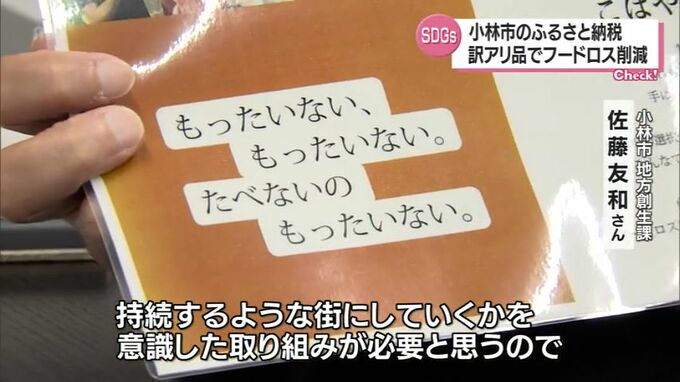 SDGs
小林市のふるさと納税
訳アリ品でフードロス削減
Check!
こばや
もったいない、
もったいない。
たべないの
もったいない。
小林市 地方創生課
佐藤友和さん
持続するような街にしていくかを
意識した取り組みが必要と思うので